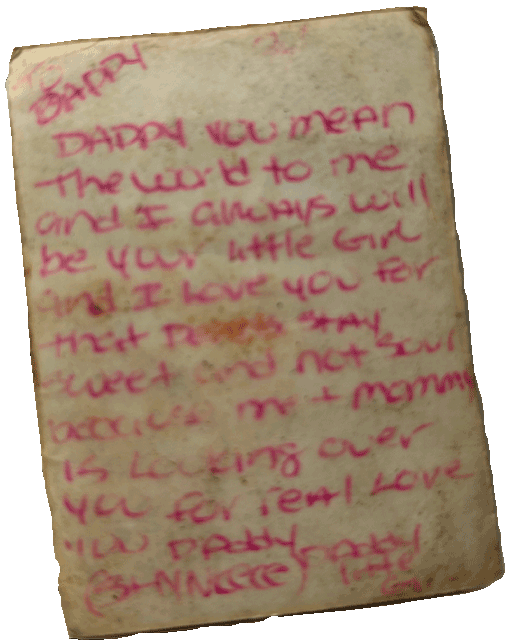 DADDY
DADDY YOU mean
The world to me
and I always will
be your little Girl
and I Love you for
that STAY
sweet and not sour
because me + mommy
is Looking over
you for real Love
you DADDY
DADDY
little
Girl